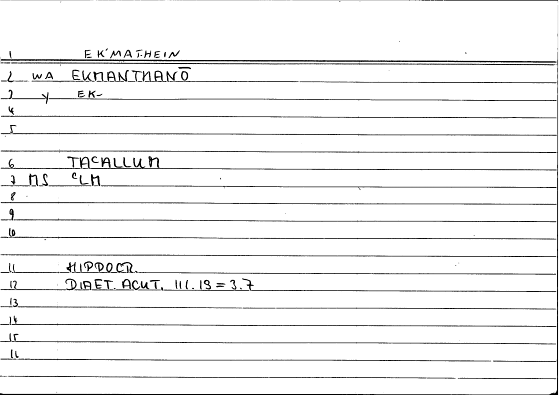 1 EK'MATHEIN
2 WA EKMANTHANŌ
3 y EK-
4
5
6 TACALLUM
7 MS CLM
8
9
10
11 HIPPOCR.
12 DIAET. ACUT. III. 19 = 3.7
13
14
15
16